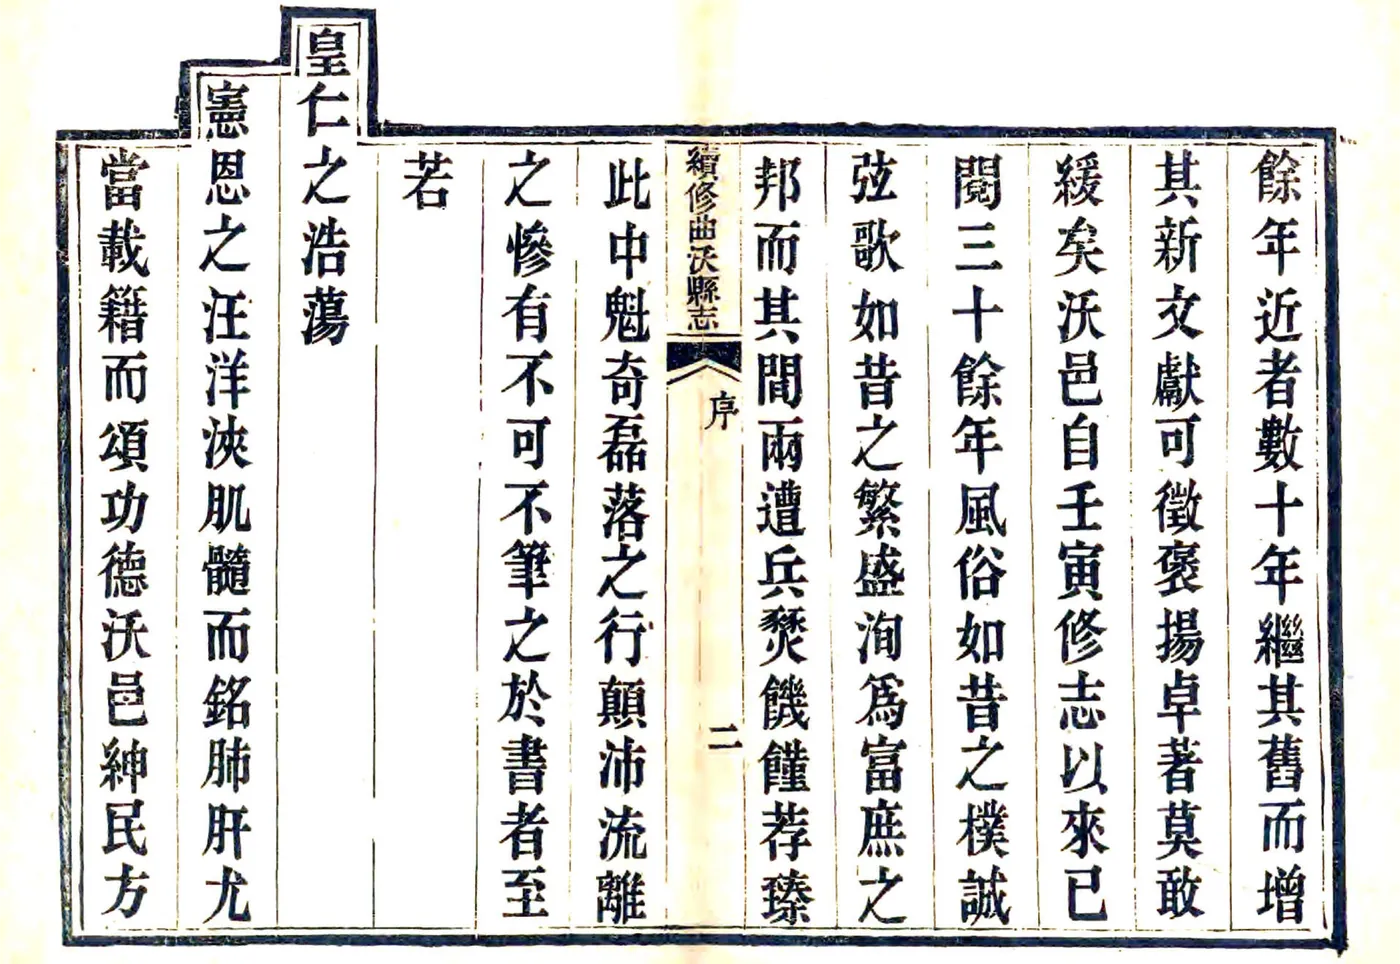 餘年近者數十年繼其舊而增
其新文獻可徵褒揚卓著莫敢
緩矣沃邑自壬寅修志以來已
閱三十餘年風俗如昔之樸誠
弦歌如昔之繁盛洵爲富庶之
邦而其間兩遭兵燹饑饉荐臻
續修曲沃縣志
序
二
此中魁奇磊落之行顛沛流離
之慘有不可不筆之於書者至
若
皇仁之浩蕩
憲恩之汪洋浹肌髓而銘肺肝尤
當載籍而頌功德沃邑紳民方